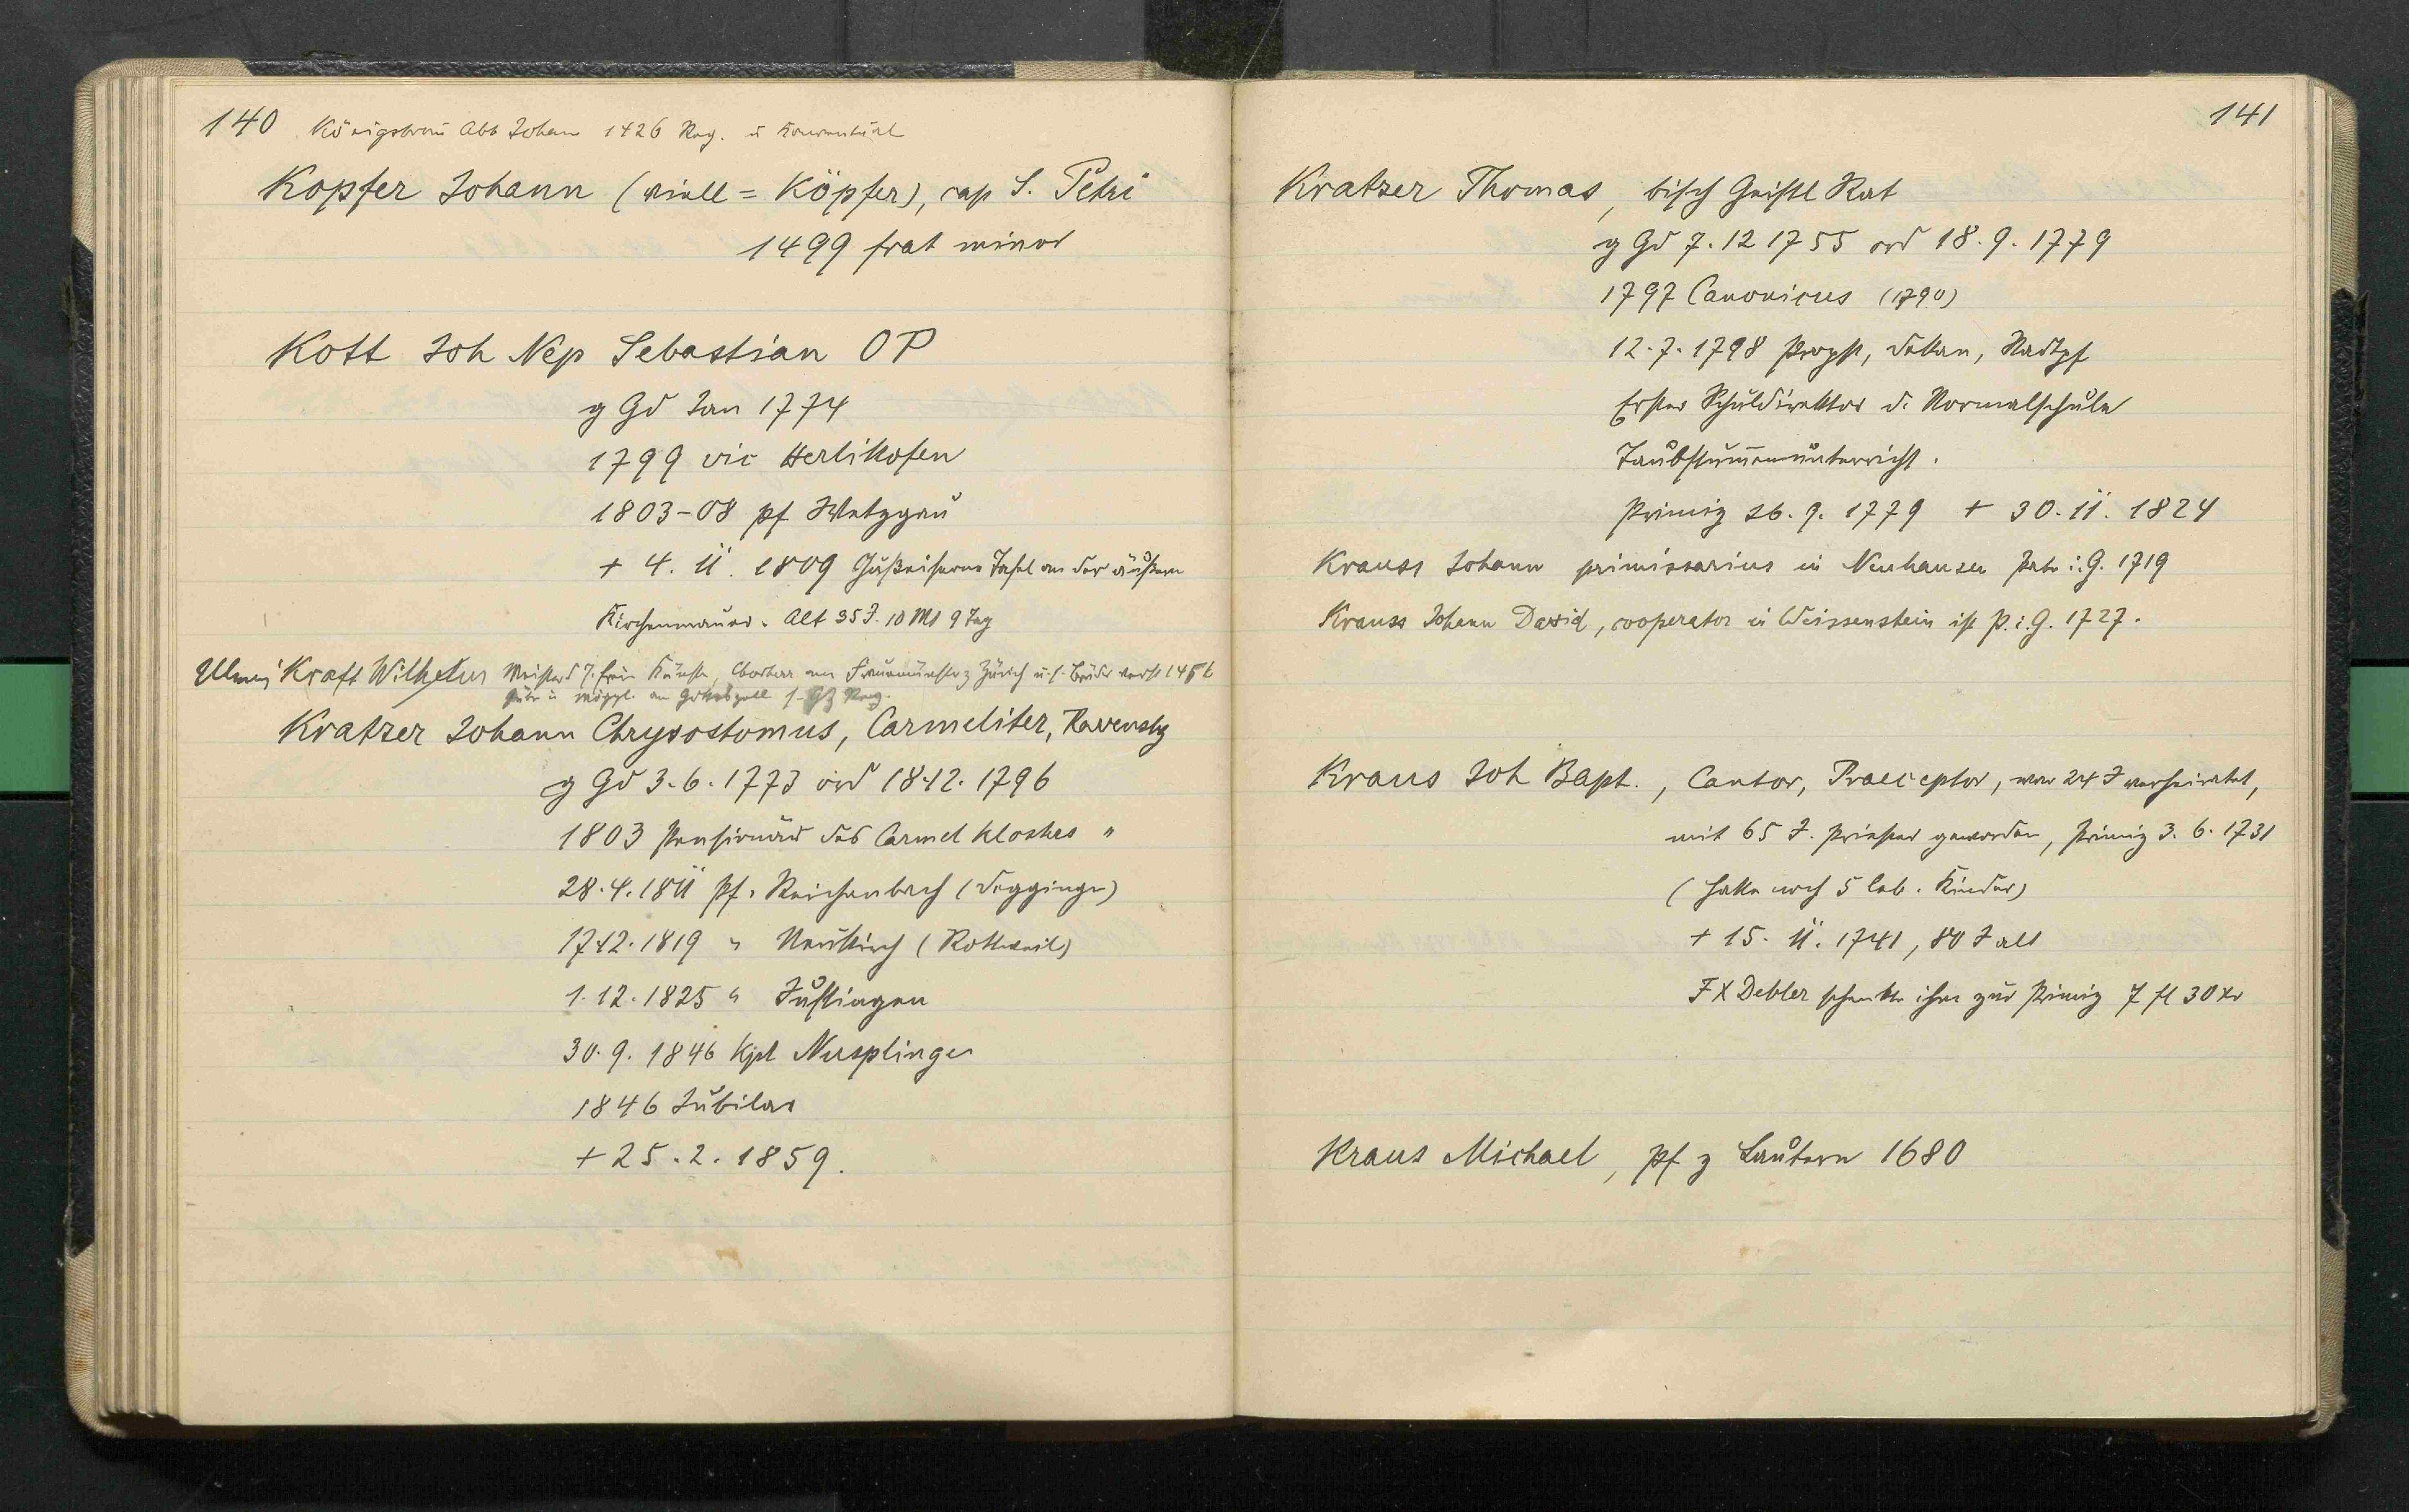 140 Königsbronn Abt Johann 1426 Reg. u Konventual
Kopfer Johann (viell = Köpfer), cap S. Petri
1499 frat minor
Kott Joh Nep Sebastian OP
g Gd Jan 1774
1799 vic Herlikofen
1803-08 pf Wetzgau
+ 4. 11. 1809 Gußeiserne Tafel an der äußern
Kirchenmauer. Alt 35 J. 10 Mt 9 Tag
Kraft Wilhelm Meister d 7 freien Künste, Chorherr am Fraumünster z Zürich u s. Bruder 
Kratzer Johann Chrysostomus, Carmeliter, Ravensbg
g Gd 3.6.1773 ord 18.12.1796
1803 Pensionär des Carmel Klosters "
28.4.1811 pf. Reichenbach (Deggingen)
17.12.1819 " Neukirch (Rottweil)
1.12.1825 " Justingen
30.9.1846 Kpl Nusplingen
1846 Jubilar
+ 25.2.1859.
141
Kratzer Thomas, bisch Geistl Rat
g Gd 7.12 1755 ord 18.9.1779
1797 Canonicus (1790)
12.7.1798 Propst, Dekan, Stadtpf
Erster Schuldirektor d. Normalschule
Taubstum̄enunterricht.
Primiz 26.9.1779 + 30.11.1824
Krauss Johann primissarius in Neuhausen Pate i. G. 1719
Krauss Johann David, cooperator in Weissenstein ist P. i. G. 1727.
Kraus Joh Bapt., Cantor, Praeceptor, war 24 J verheiratet,
mit 65 J. Priester geworden, Primiz 3.6.1731
(hatte noch 5 leb. Kinder)
+ 15. 11. 1741, 80 J alt
FX Debler schenkte ihm zur Primiz 7 fl 30 xr
Kraus Michael, pf z Lautern 1680